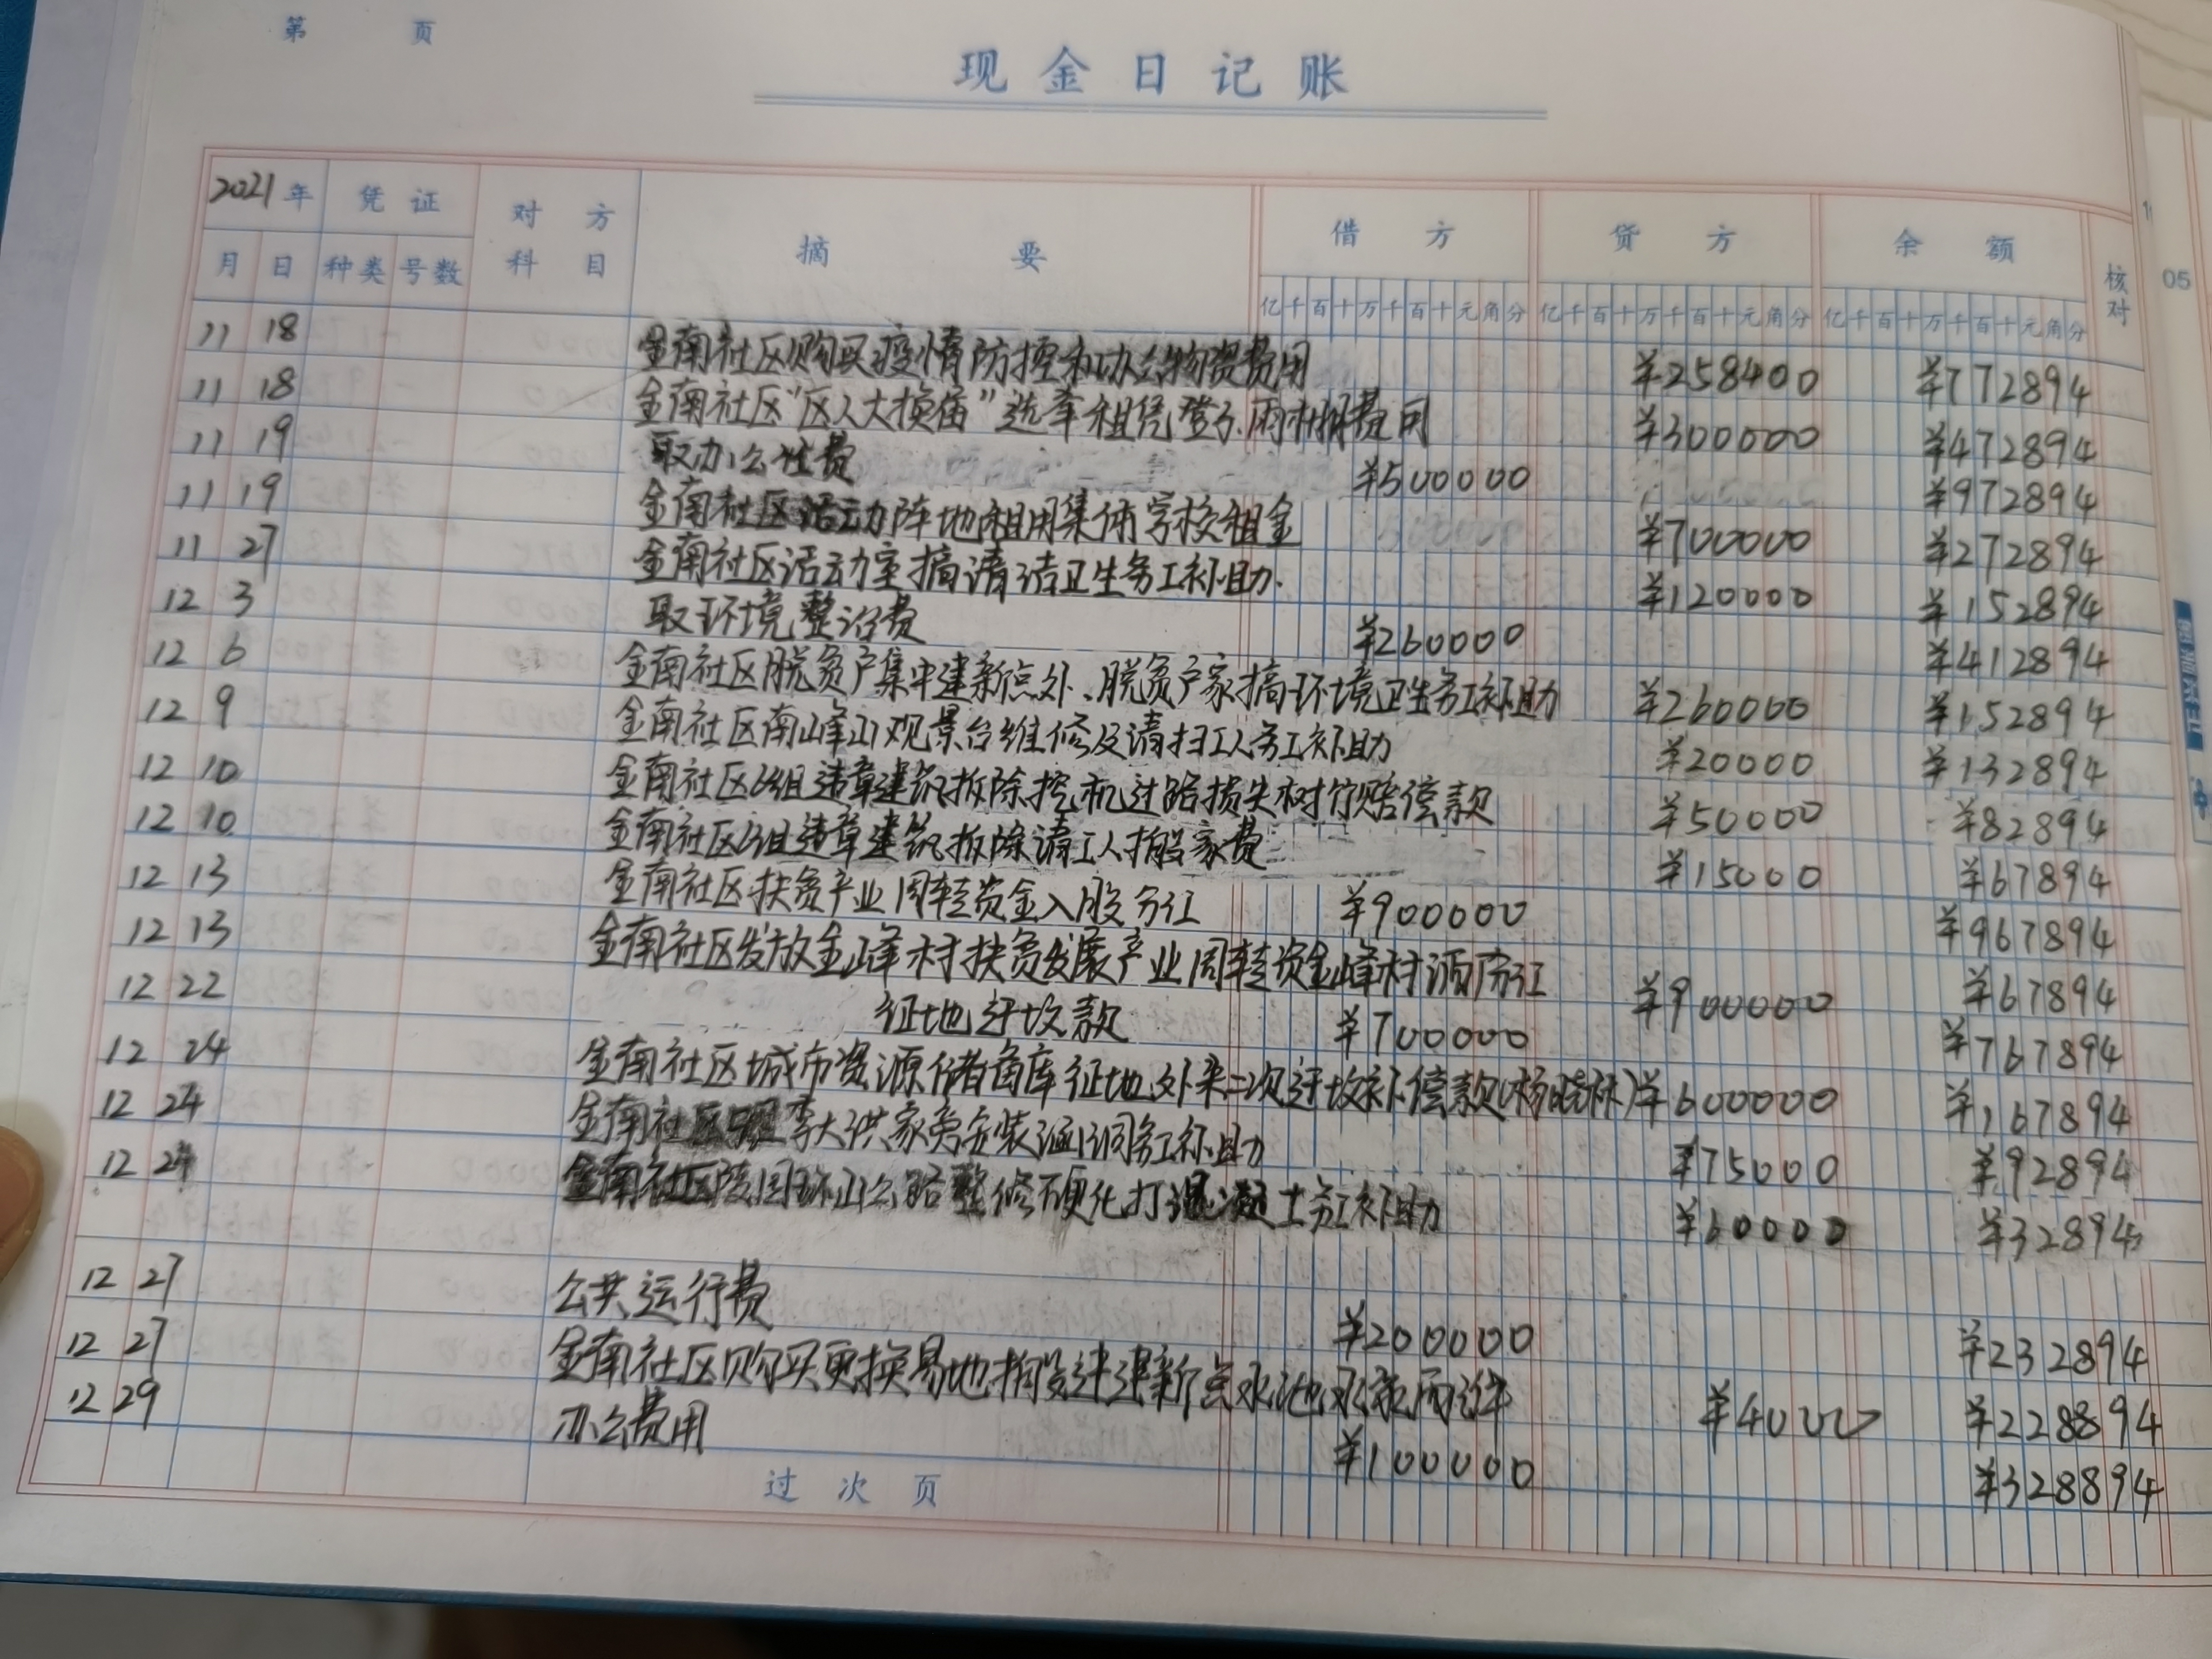 第 页
现金日记账
2021年 凭证 对方科目 摘要 借方 贷方 余额 核对
月 日 种类 号数 亿千百十万千百十元角分 亿千百十万千百十元角分 亿千百十万千百十元角分
11 18 金南社区购买疫情防控和办公物资费用 ¥258400 ¥772894
11 18 金南社区"区人大换届"选举租凭登子、雨棚费用 ¥300000 ¥472894
11 19 取办公经费 ¥500000 ¥972894
11 19 金南社区活动阵地租用集体学校租金 ¥700000 ¥272894
11 27 金南社区活动室搞清洁卫生务工补助. ¥120000 ¥152894
12 3 取环境整治费 ¥260000 ¥412894
12 6 金南社区脱贫户集中建新点外、脱贫户家搞环境卫生务工补助 ¥260000 ¥152894
12 9 金南社区南峰山观景台维修及清扫工人务工补助 ¥20000 ¥132894
12 10 金南社区6组违章建筑拆除挖机过路损失树竹赔偿款 ¥50000 ¥82894
12 10 金南社区6组违章建筑拆除请工人搬家费 ¥15000 ¥67894
12 13 金南社区扶贫产业周转资金入股分红 ¥900000 ¥967894
12 13 金南社区发放金峰村扶贫发展产业周转资金峰村酒厂分红 ¥900000 ¥67894
12 22 征地迁坟款 ¥700000 ¥767894
12 24 金南社区城市资源储备库征地外来二次迁坟补偿款(杨晓林) ¥600000 ¥167894
12 24 金南社区 李大洪家旁安装涵洞务工补助 ¥75000 ¥92894
12 24 金南社区陵园环山公路整修硬化打混凝土务工补助 ¥60000 ¥32894
12 27 公共运行费 ¥200000 ¥232894
12 27 金南社区购买更换易地搬迁建新点水池水泵 ¥4000 ¥228894
12 29 办公费用 ¥100000 ¥328894
过次页
05